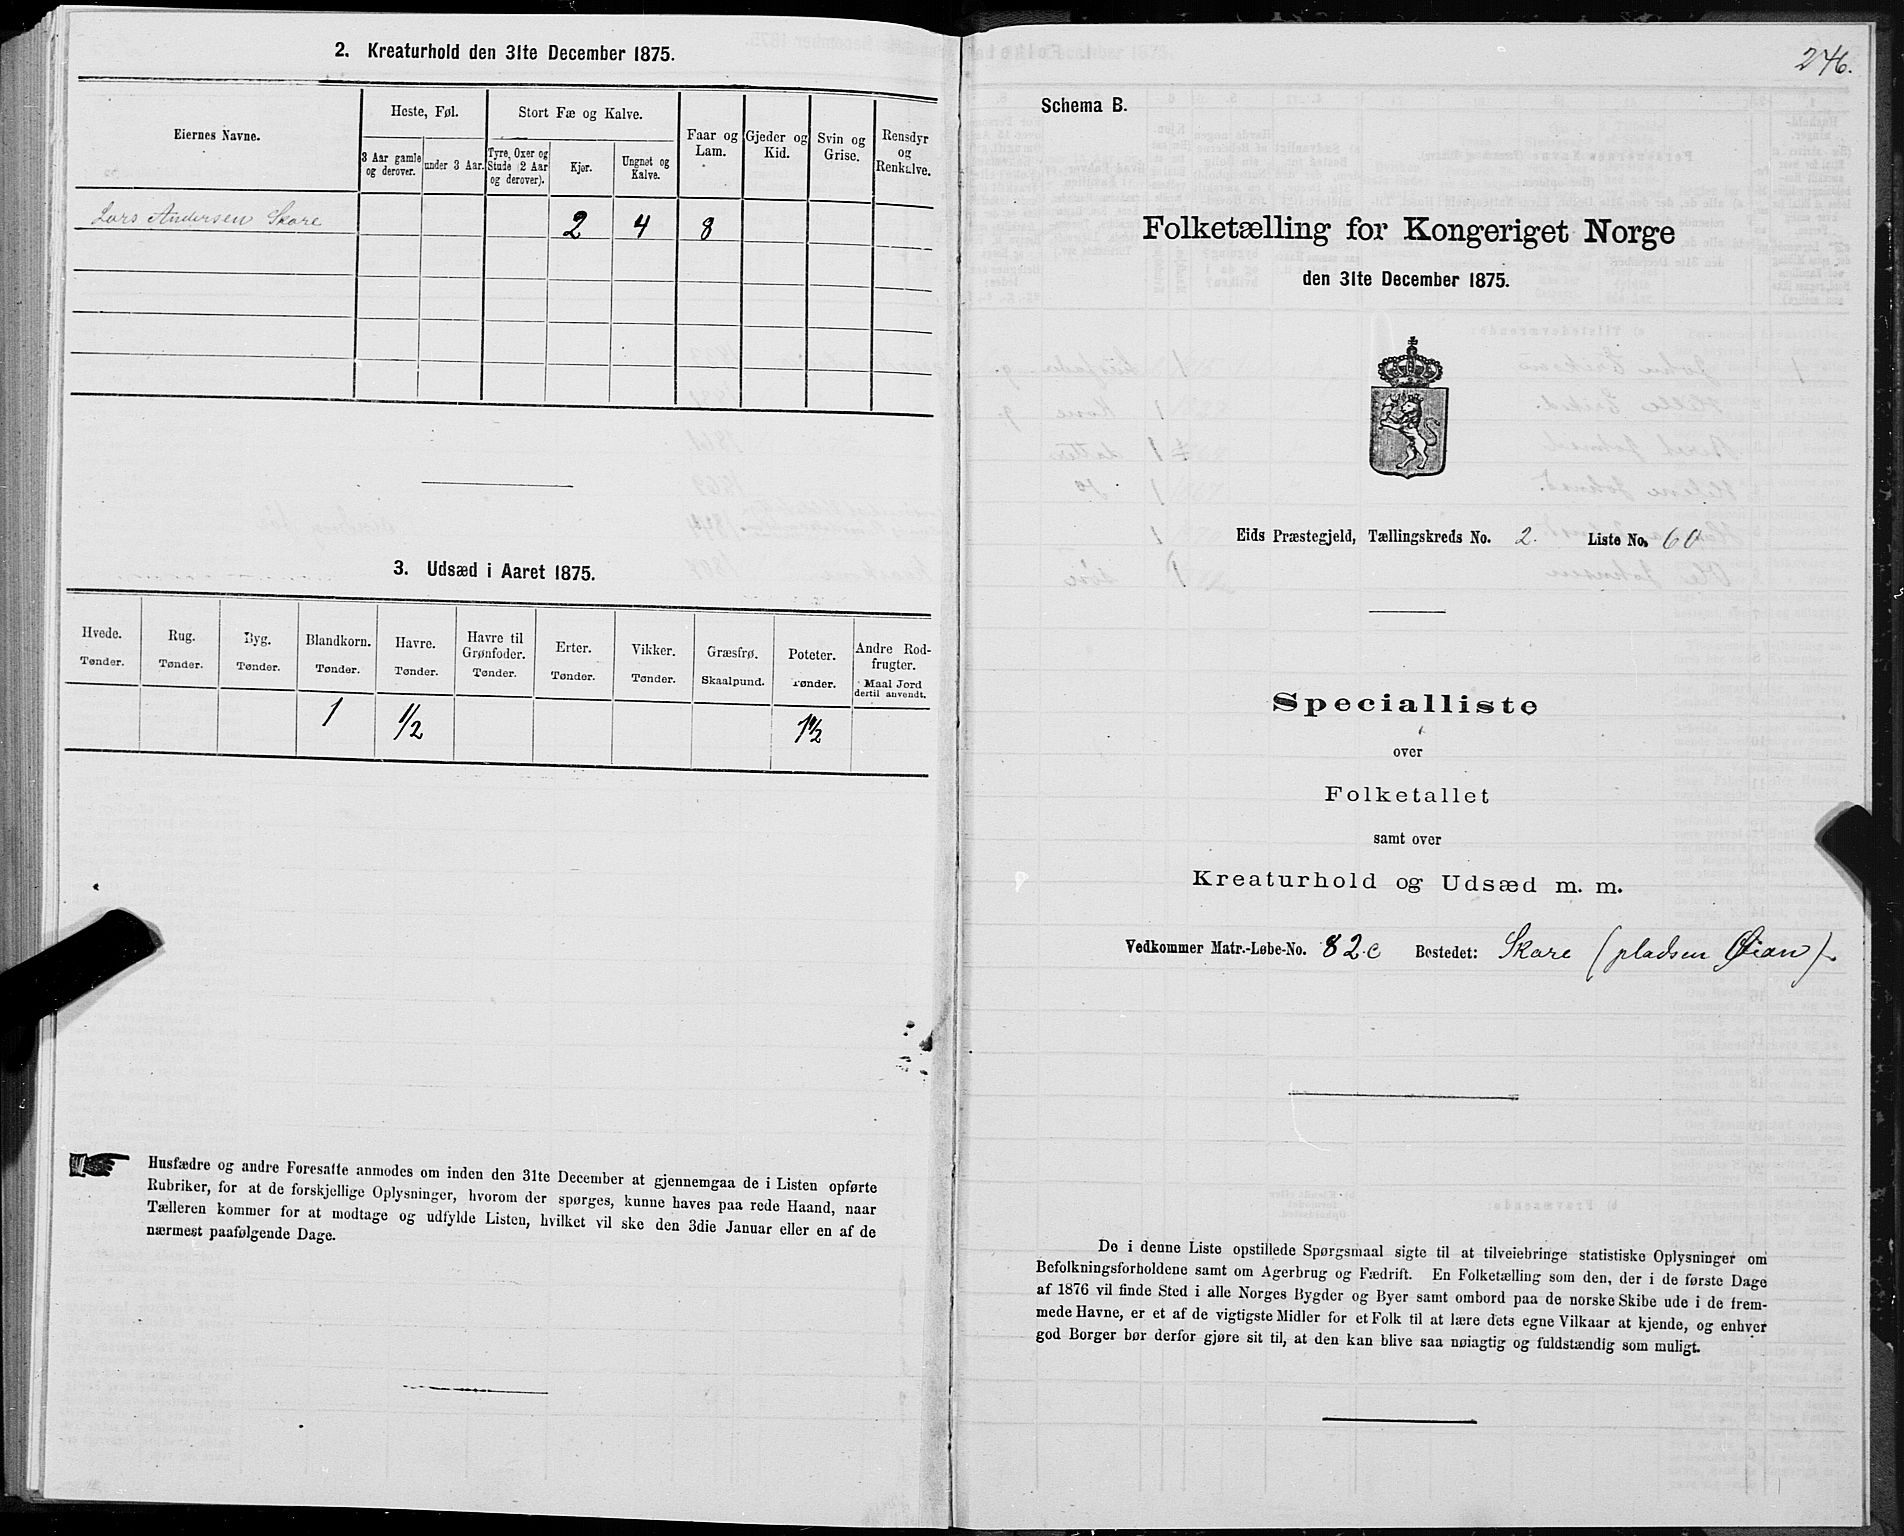 2. Kreaturhold den 31te December 1875.
Eiernes Navne.
Heste, Føl.
Stort Fæ og Kalve.
Faar og
Lam.
Gjeder og
Kid.
Svin og
Grise.
Rensdyr
og
Renkalve.
3 Aar gamle
og derover.
under 3 Aar.
Tyre, Oxer og
Stude (2 Aar
og derover).
Kjør.
Ungnøt og
Kalve.
Lars Andersen Skare 2 4 8
3. Udsæd i Aaret 1875.
Hvede.
Tønder.
Rug.
Tønder.
Byg.
Tønder.
Blandkorn.
Tønder.
Havre.
Tønder.
Havre til
Grønfoder.
Tønder.
Erter.
Tønder.
Vikker.
Tønder.
Græsfrø.
Skaalpund.
Poteter.
Tønder.
Andre Rod-
frugter.
Maal Jord
dertil anvendt.
1 1/2 1 1/2
Husfædre og andre Foresatte anmodes om inden den 31te December at gjennemgaa de i Listen opførte
Rubriker, for at de forskjellige Oplysninger, hvorom der spørges, kunne haves paa rede Haand, naar
Tælleren kommer for at modtage og udfylde Listen, hvilket vil ske den 3die Januar eller en af de
nærmest paafølgende Dage.
246.
Schema B.
Folketælling for Kongeriget Norge
den 31te December 1875.
Eids Præstegjeld, Tællingskreds No. 2. Liste No. 60
Specialliste
over
Folketallet
samt over
Kreaturhold og Udsæd m. m.
Vedkommer Matr.-Løbe-No. 82 c Bostedet: Skare (pladsen Øian)
De i denne Liste opstillede Spørgsmaal sigte til at tilveiebringe statistiske Oplysninger om
Befolkningsforholdene samt om Agerbrug og Fædrift. En Folketælling som den, der i de første Dage
af 1876 vil finde Sted i alle Norges Bygder og Byer samt ombord paa de norske Skibe ude i de frem-
mede Havne, er et af de vigtigste Midler for et Folk til at lære dets egne Vilkaar at kjende, og enhver
god Borger bør derfor gjøre sit til, at den kan blive saa nøiagtig og fuldstændig som muligt.